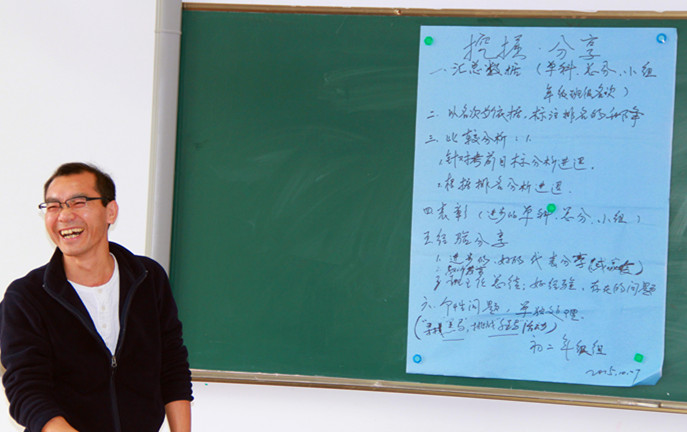 挖掘·分享
一、汇总数据（单科、总分、小组
年级班级名次）
二、以名次为依据，标注排名的升降
三、比较分析：1.
1.针对考前目标分析进退。
2.根据排名分析进退。
四、表彰（进步的单科、总分、小组）
五、经验分享
1.进步的、好的代表分享
3.班主任总结：好经验，存在的问题
六、个性问题，单独处理。
初二年级组
2015.10.27